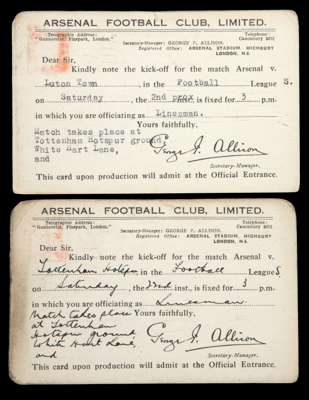 ARSENAL FOOTBALL CLUB, LIMITED.
Telegraphic Address:
"Gunneritic, Finspark, London."
Telephone:
Canonbury 2312
Secretary-Manager: GEORGE F. ALLISON.
Registered Office: ARSENAL STADIUM, HIGHBURY
LONDON, N.5.
Dear Sir,
Kindly note the kick-off for the match Arsenal v.
Luton Town , in the Football League S.
on Saturday , the 2nd prox. is fixed for 3 p.m.
in which you are officiating as Linesman.
Yours faithfully,
Match takes place at
Tottenham Hotspur ground
White Hart Lane,
and
George F. Allison
Secretary-Manager.
This card upon production will admit at the Official Entrance.
ARSENAL FOOTBALL CLUB, LIMITED.
Telegraphic Address:
"Gunneritic, Finspark, London."
Telephone:
Canonbury 2312
Secretary-Manager: GEORGE F. ALLISON.
Registered Office: ARSENAL STADIUM, HIGHBURY
LONDON, N.5.
Dear Sir,
Kindly note the kick-off for the match Arsenal v.
Tottenham Hotspur in the Football League S
on Saturday , the 23rd inst., is fixed for 3 p.m.
in which you are officiating as Linesman
Match takes place Yours faithfully,
at Tottenham
Hotspur ground
White Hart Lane,
and
George F. Allison
Secretary-Manager.
This card upon production will admit at the Official Entrance.